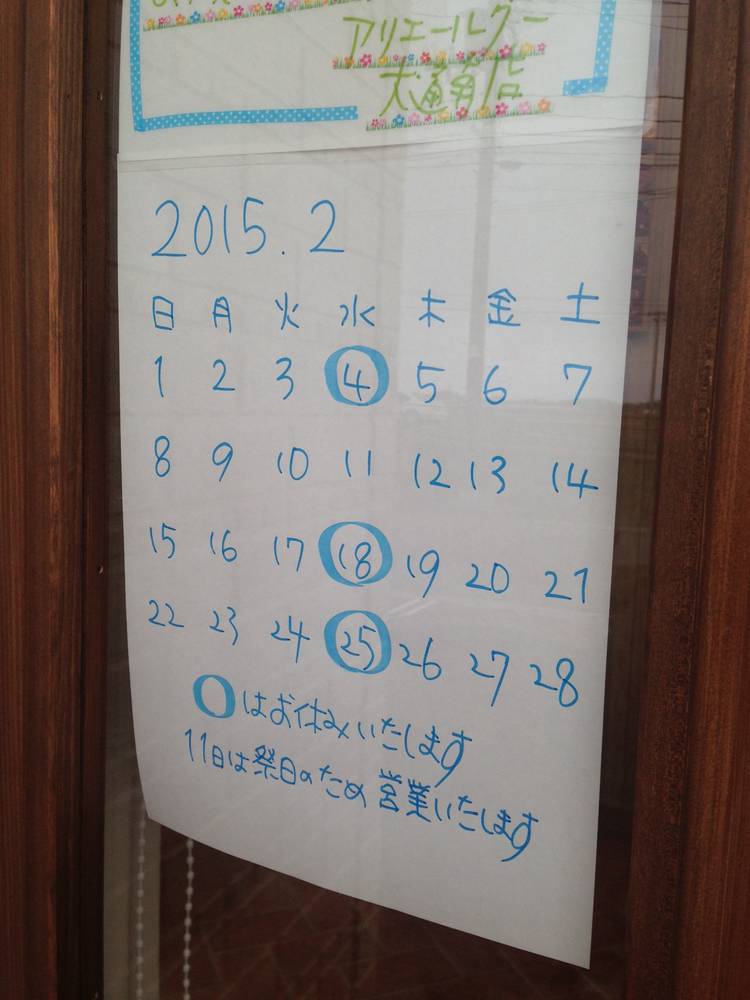 アリエールクー
犬通角店
2015.2
日 月 火 水 木 金 土
1 2 3 4 5 6 7
8 9 10 11 12 13 14
15 16 17 18 19 20 21
22 23 24 25 26 27 28
○はお休みいたします
11日は祭日のため営業いたします